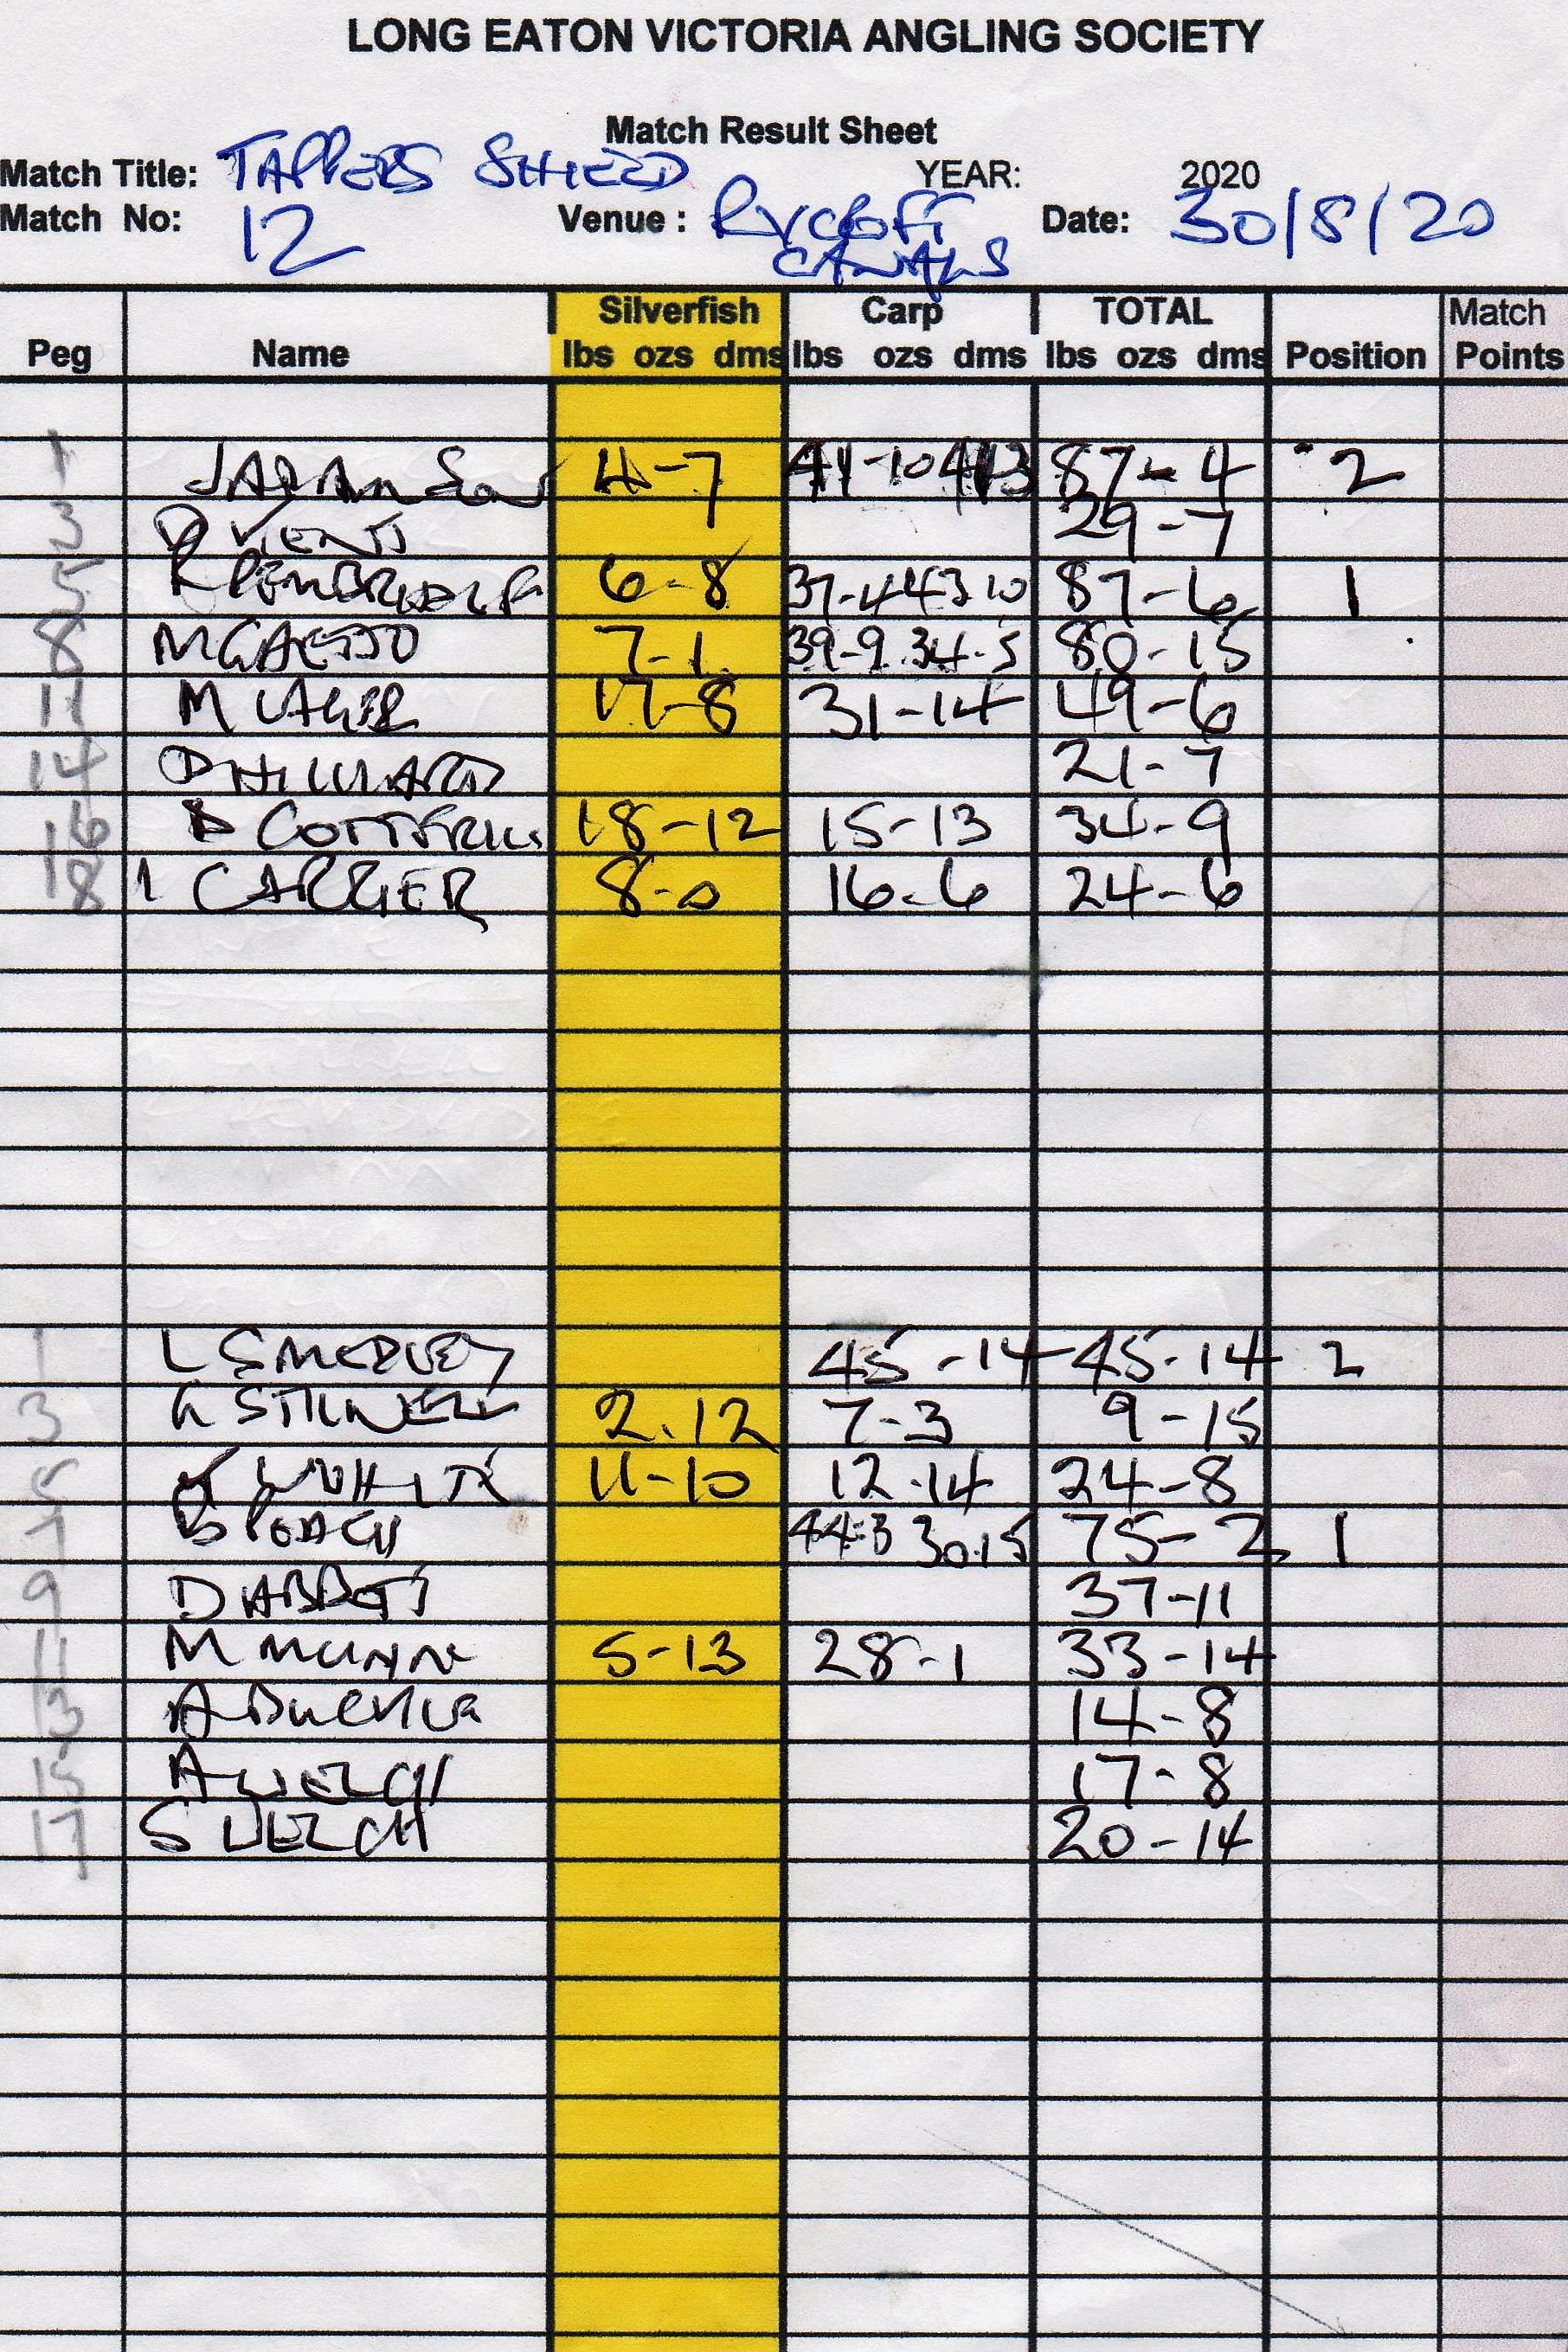 LONG EATON VICTORIA ANGLING SOCIETY
Match Result Sheet
Match Title: TAPPERS SHIELD YEAR: 2020
Match No: 12 Venue : RYCROFT CANALS Date: 30/8/20
Silverfish Carp TOTAL Match
Peg Name lbs ozs dms lbs ozs dms lbs ozs dms Position Points
1 4-7 41-10 87-4 2
3 D 29-7
5 R 6-8 37-4 43 10 87-6 1
8 M 7-1 39-9 34-5 80-15
11 M 17-8 31-14 49-6
14 D HILLIARD 21-7
16 COTTERILL 18-12 15-13 34-9
18 I CARRIER 8-0 16-6 24-6
1 L SMEDLEY 45-14 45-14 2
3 G STILWELL 2.12 7-3 9-15
5 WHITE 11-10 12-14 24-8
7 B ROACH 44-3 30.15 75-2 1
9 D ABBOTT 37-11
11 M MUNN 5-13 28-1 33-14
13 A 14-8
15 A WELCH 17-8
17 S WELCH 20-14